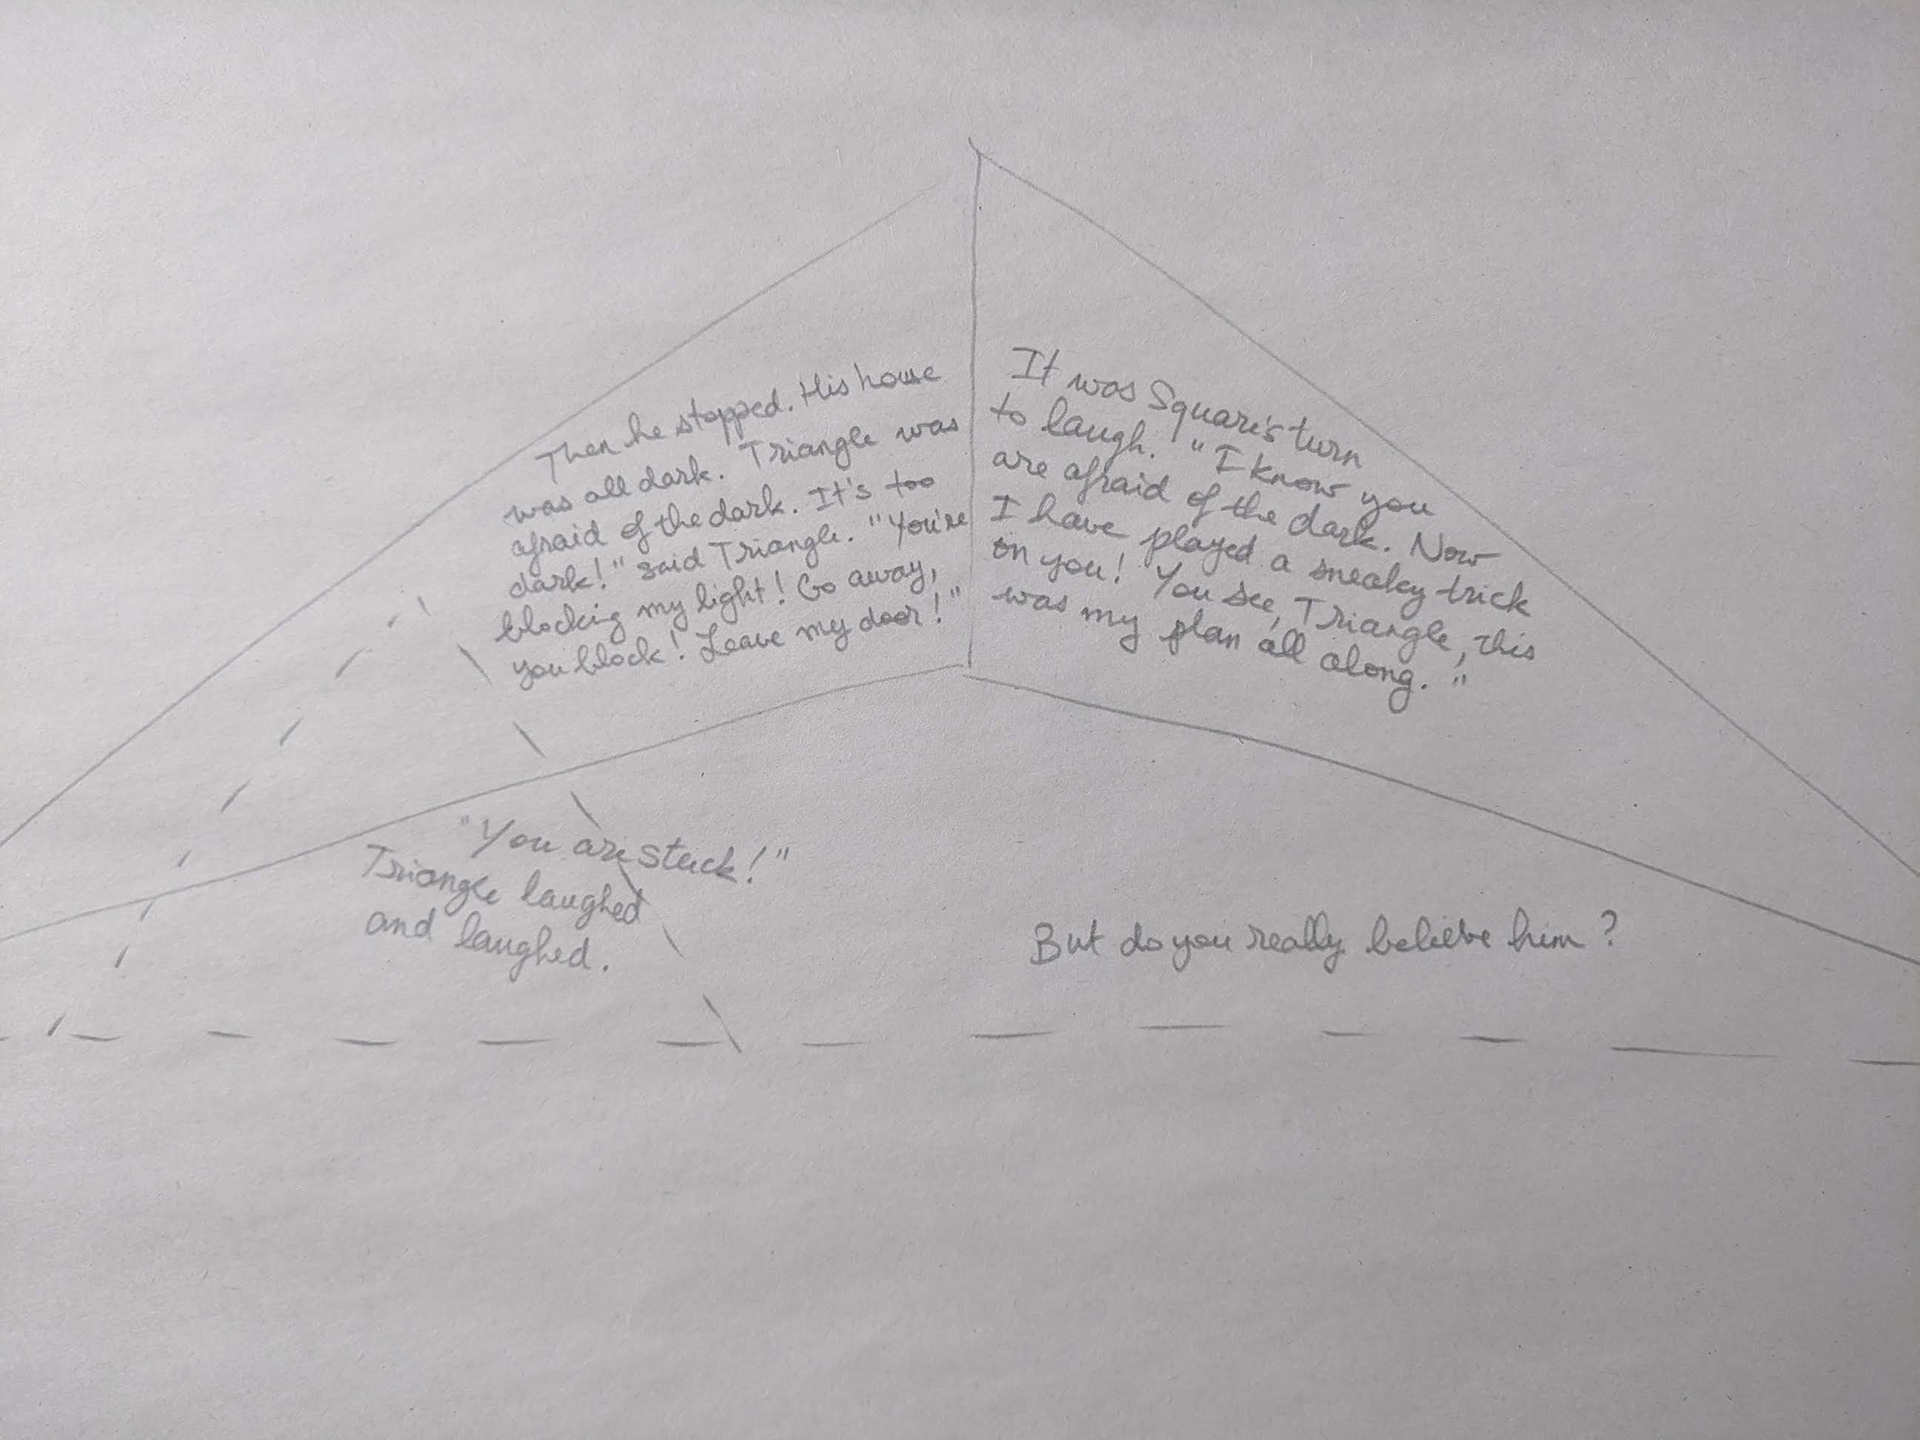 Then he stopped. His house
was all dark. Triangle was
afraid of the dark. It's too
dark!" said Triangle. "You're
blocking my light! Go away,
you block! Leave my door!"
It was Square's turn
to laugh. "I know you
are afraid of the dark. Now
I have played a sneaky trick
on you! You see, Triangle, this
was my plan all along."
"You are stuck!"
Triangle laughed
and laughed.
But do you really believe him?